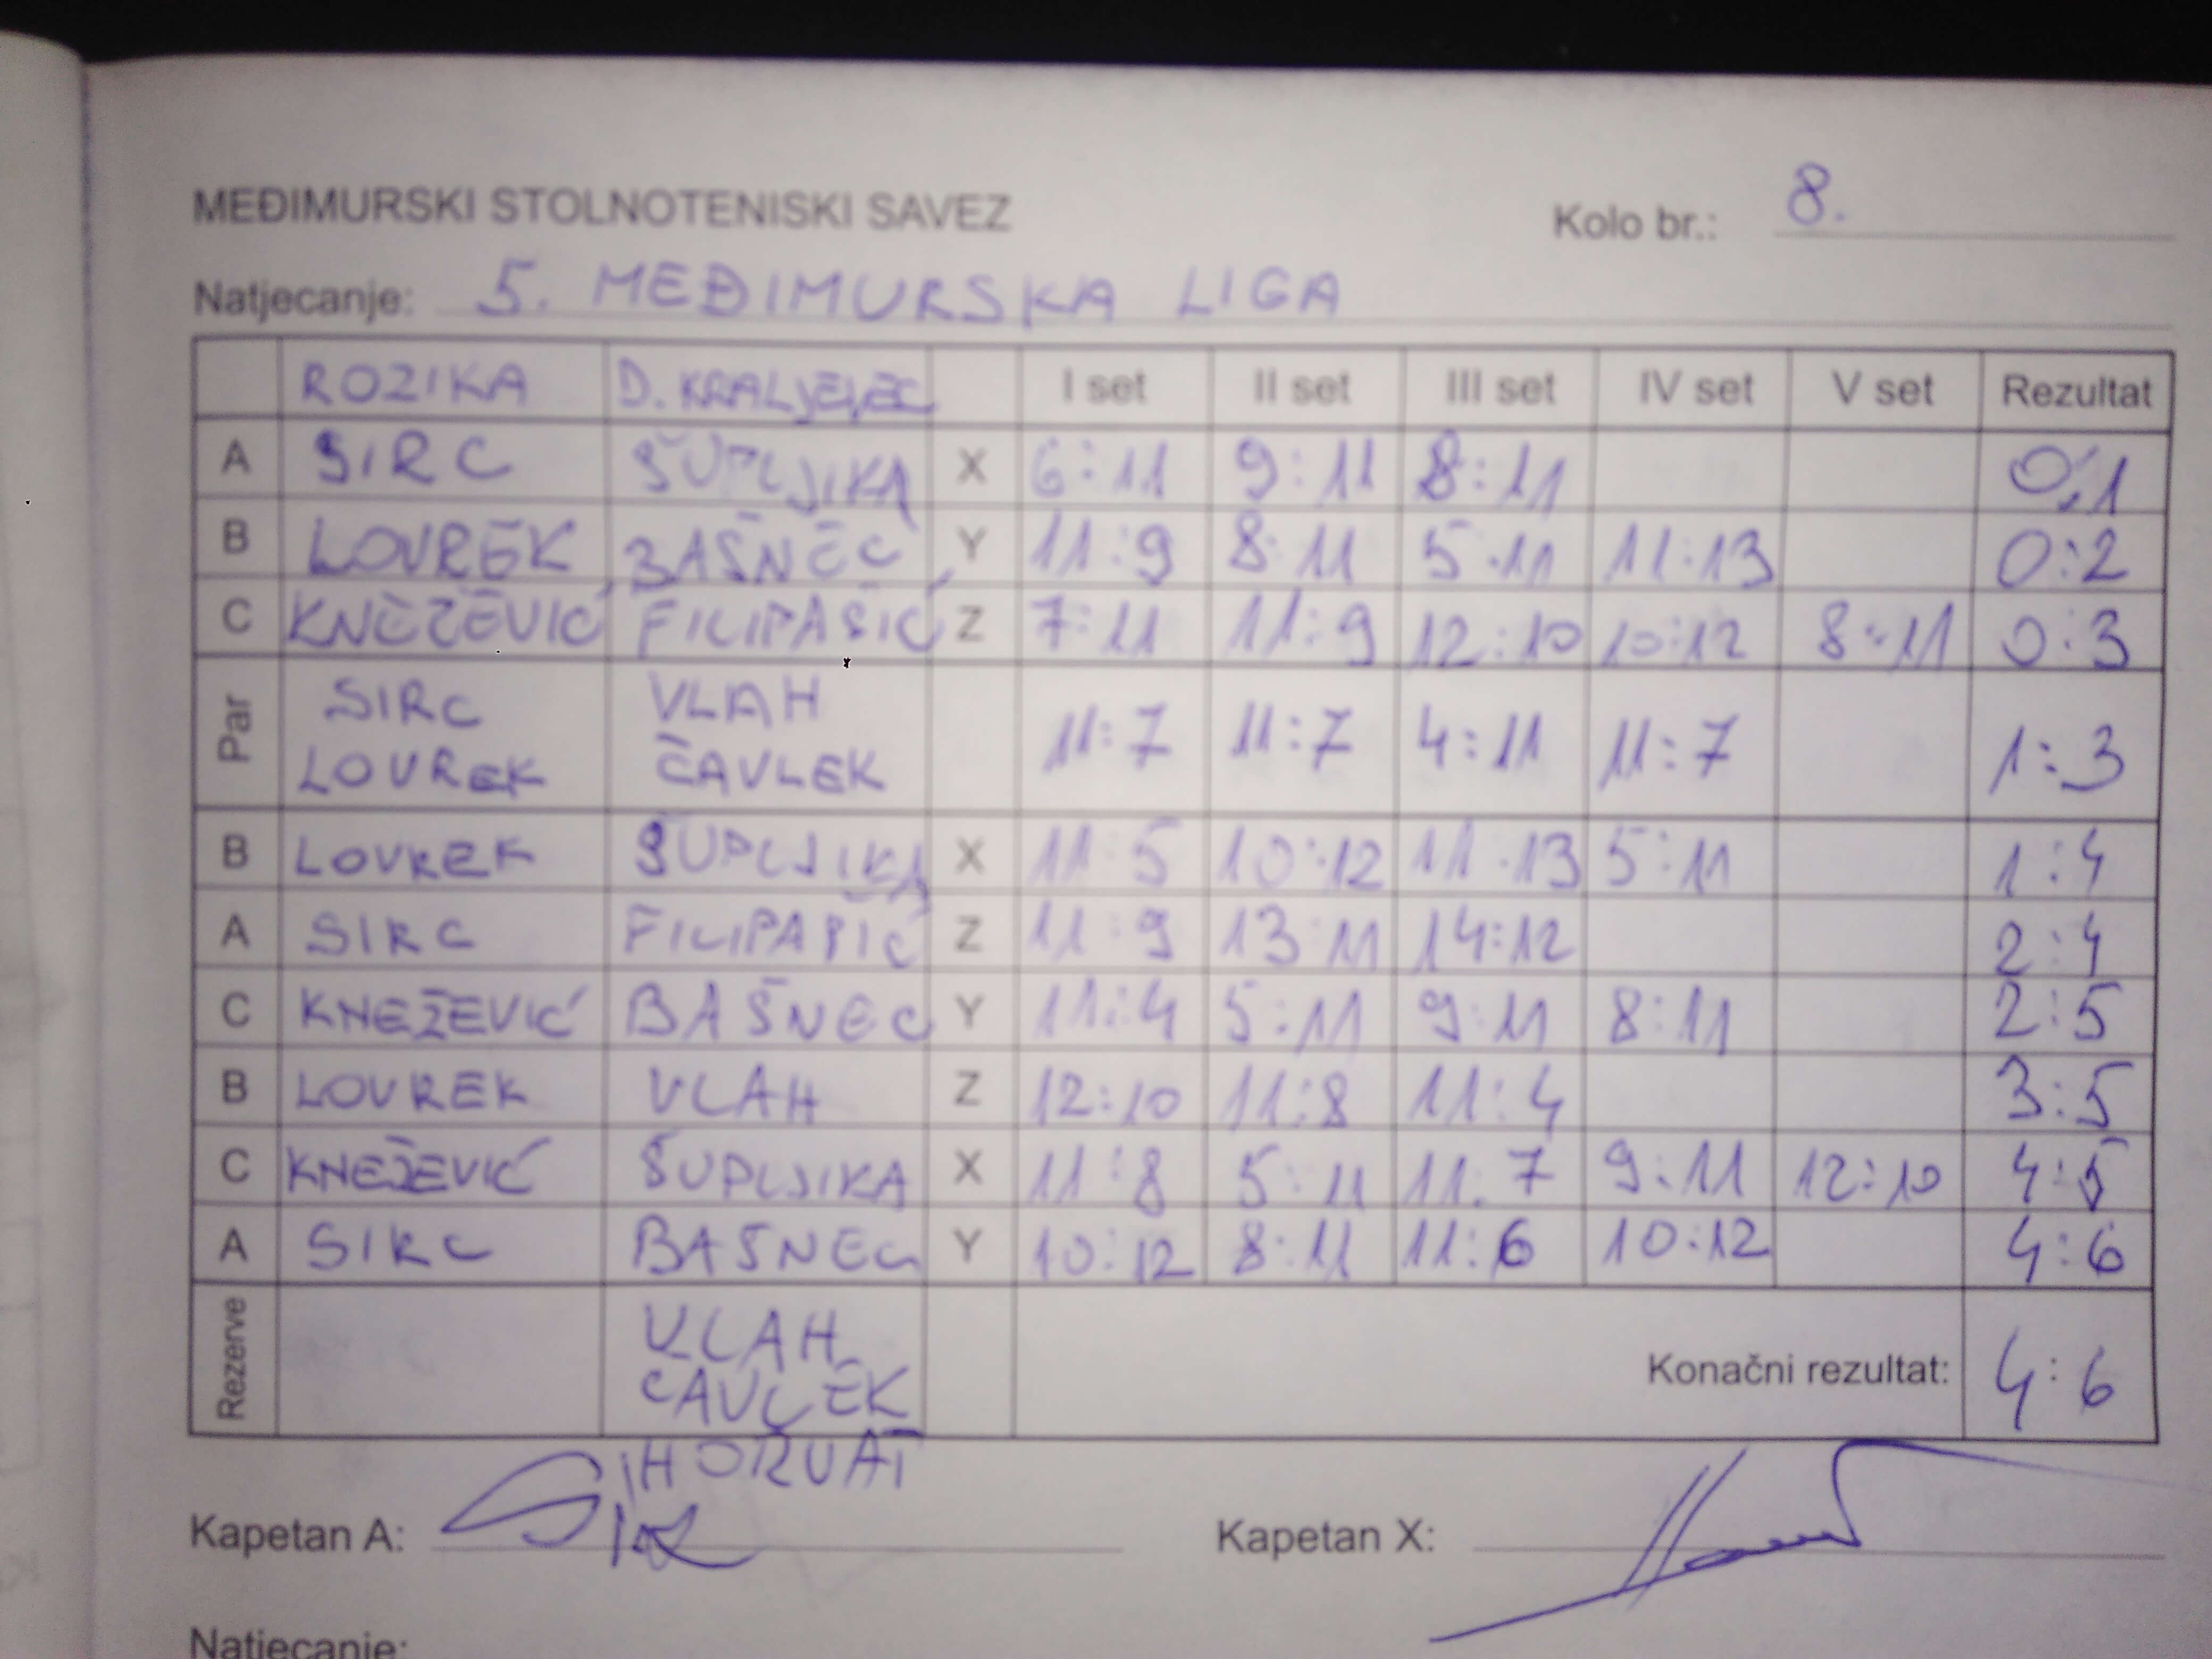 MEĐIMURSKI STOLNOTENISKI SAVEZ Kolo br.: 8.
Natjecanje: 5. MEĐIMURSKA LIGA
ROZIKA D. KRALJEVEC I set II set III set IV set V set Rezultat
A SIRC ŠUPLJIKA X 6:11 9:11 8:11 0:1
B LOVREK BAŠNEC Y 11:9 8:11 5:11 11:13 0:2
C KNEŽEVIĆ FILIPAŠIĆ Z 7:11 11:9 12:10 10:12 8:11 0:3
Par SIRC LOVREK VLAH ČAVLEK 11:7 11:7 4:11 11:7 1:3
B LOVREK ŠUPLJIKA X 11:5 10:12 11:13 5:11 1:4
A SIRC FILIPAŠIĆ Z 11:9 13:11 14:12 2:4
C KNEŽEVIĆ BAŠNEC Y 11:4 5:11 9:11 8:11 2:5
B LOVREK VLAH Z 12:10 11:8 11:4 3:5
C KNEŽEVIĆ ŠUPLJIKA X 11:8 5:11 11:7 9:11 12:10 4:5
A SIRC BAŠNEC Y 10:12 8:11 11:6 10:12 4:6
Rezerve VLAH ČAVLEK HORVAT Konačni rezultat: 4:6
Kapetan A: Kapetan X:
Natjecanje: